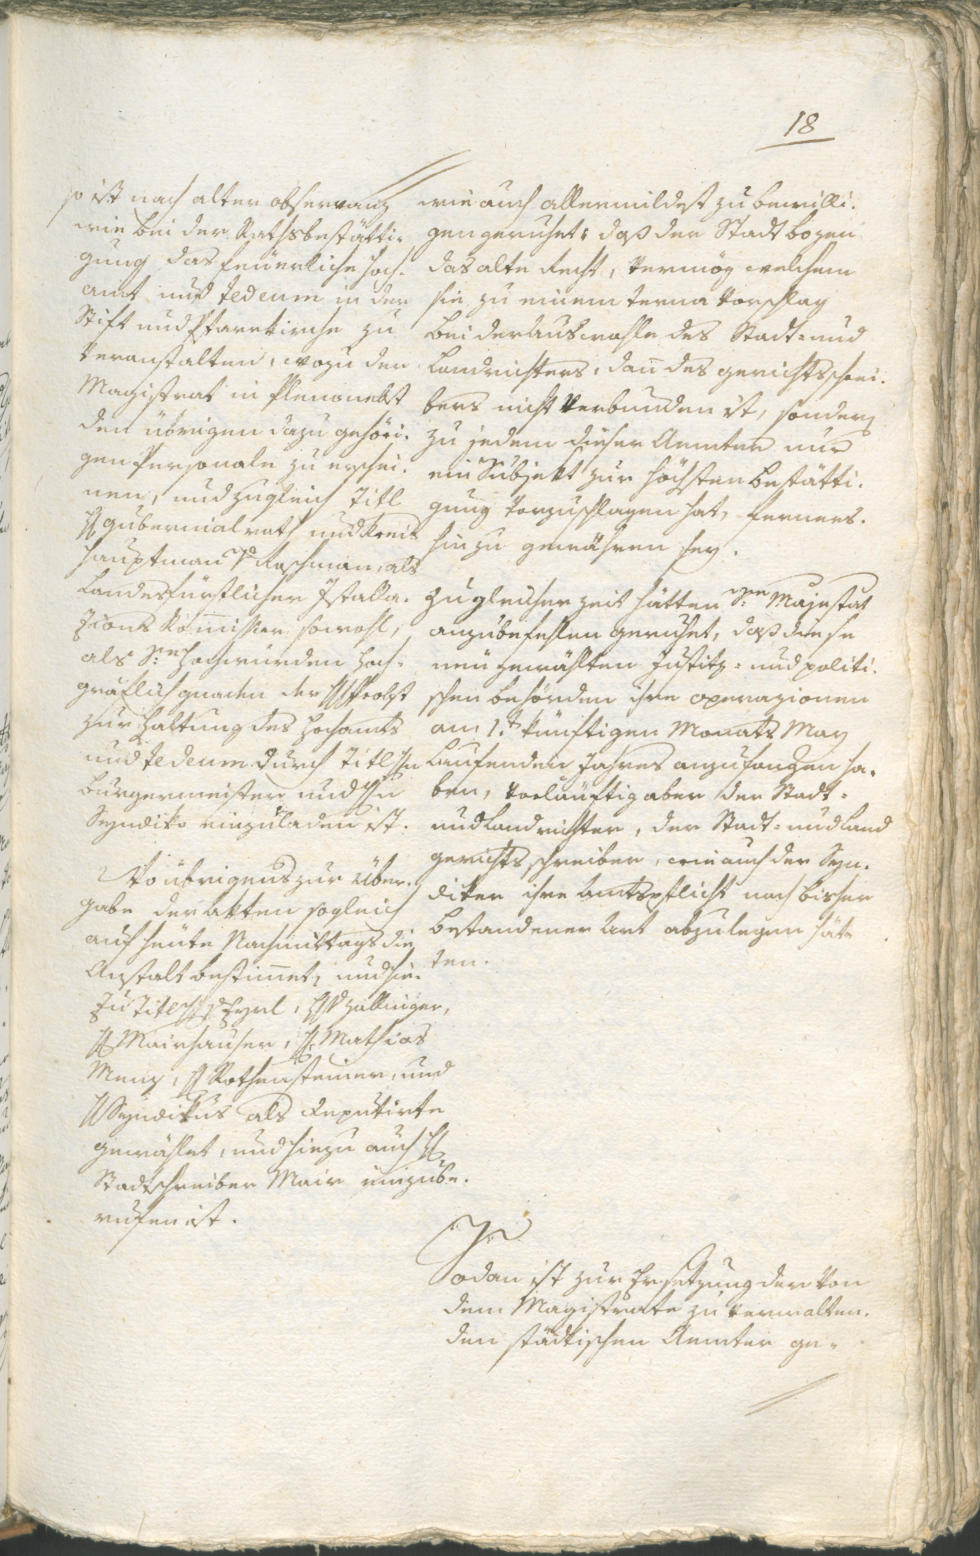 18
so ist nach alter observanz
wie bei der Rathsbestätti-
gung das feuerliche Hoch-
amt und Tedeum in der
Stift und Pfarrkirche zu
veranstalten, wozu der
Magistrat in Pleno nebst
den übrigen dazu gehöri-
gen Personale zu erschei-
nen, und zugleich Titl
H. gubernialrath und Kreis
hauptman v. Roschman, als
Landesfürstlicher Installa-
zions Kom̅issier sowohl,
als Sr. Hochwürden hoch-
gräflich gnaden der H. Probst
zur Haltung des Hochamts
und Tedeum durch Titl Hn
Burgermeister und Hn
Syndiko einzuladen ist.
Wo übrigens zur Über-
gabe der Akten sogleich
auf heute Nachmittags die
Anstalt bestim̅et, und hie-
zu Titl H. v. Eyrl, H. v. Zallinger,
H. Mairhauser, H. Mathias
Menz, H. Rothensteiner, und
H. Syndikus als Deputirte
gewählet, und hiezu auch H.
Stadtschreiber Mair einzube-
rufen ist.
wie auch allermildest zu bewilli-
gen geruhet: daß der Stadt bozen
das alte Recht, vermög welchem
sie zu einem terna Vorschlag
bei der Auswahle des Stadt- und
Landrichters, dan̅ des gerichtsschrei-
bers nicht verbunden ist, sondern
zu jedem dieser Aemter nur
ein Subjekt zur höchsten Bestätti-
gung vorzuschlagen hat, ferners-
hin zu gewähren sey.
Zu gleicher Zeit hätten Se. Majestät
anzubefehlen geruhet, daß diese
neu gewählten Justitz- und politi-
schen Behörden ihre operazionen
am 1.t künftigen Monats May
Laufenden Jahres anzufangen ha-
ben, vorläuftig aber der Stadt-
und Landrichter, der Stadt- und Land
gerichtsschreiber, wie auch der Syn-
diker ihre Amtspflicht nach bisher
bestandener Art abzulegen hät-
ten.
Sodan ist zur Ersetzung der von
dem Magistrate zu verwalten-
den städtischen Aemter ge-